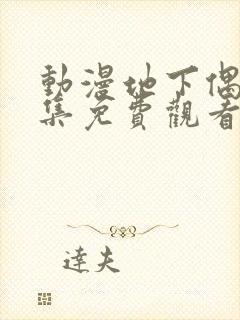 動漫地下偶
集免費觀看
達夫